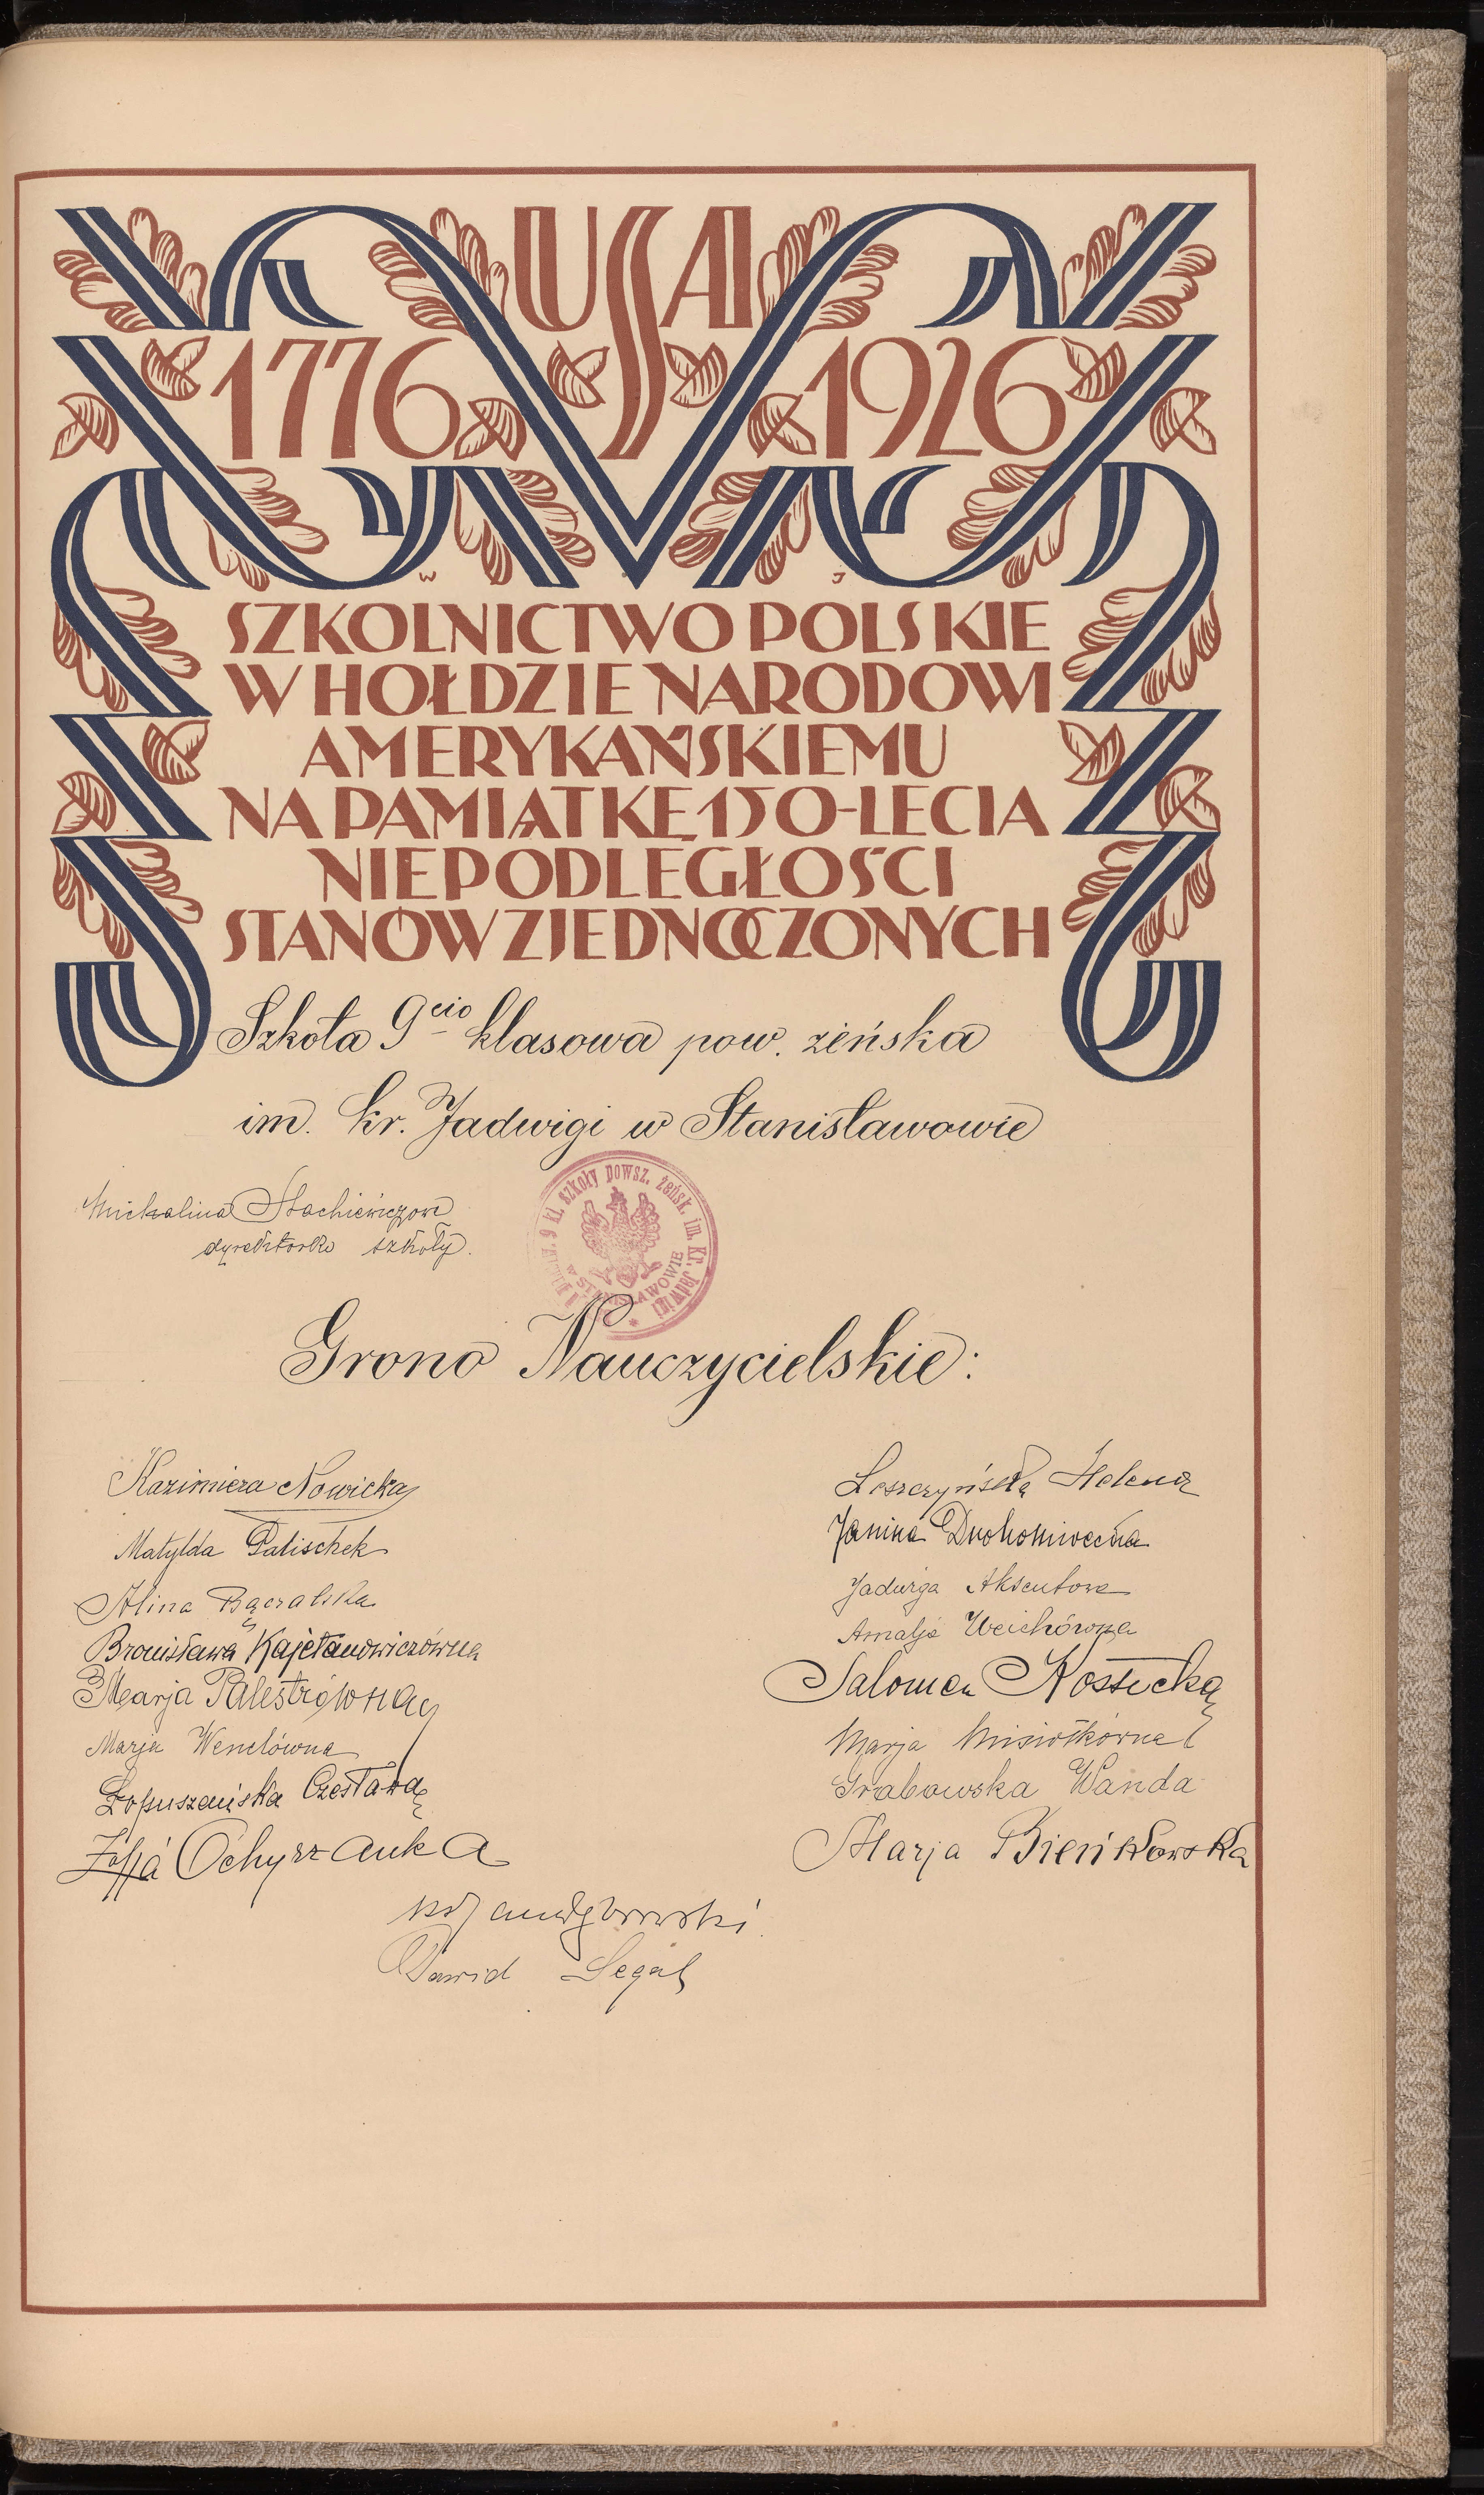 USA
1776 1926
W J
SZKOLNICTWO POLSKIE
W HOŁDZIE NARODOWI
AMERYKAŃSKIEMU
NA PAMIĄTKĘ 150-LECIA
NIEPODLEGŁOŚCI
STANÓW ZJEDNOCZONYCH
Szkoła 9cio klasowa pow. żeńska
im. kr. Jadwigi w Stanisławowie
Michalina Stachiewiczowa
dyrektorka szkoły.
9 kl. szkoły powsz. żeńsk. im. Kr. Jadwigi
W STANISŁAWOWIE
Grono Nauczycielskie:
Kazimiera Nowicka
Matylda Palischek
Alina Bączalska
Bronisława Kajetanowiczówna
Marja Palestrówna
Marja Wenclówna
Łopuszańska Czesława
Zofja Ochyrzanka
Leszczyńska Helena
Janina
Jadwiga Aksentowa
Amalja Weichówna
Salomea Kossucka
Marja Misiołkówna
Grabowska Wanda
Marja Bieńkowska
Dawid Segal